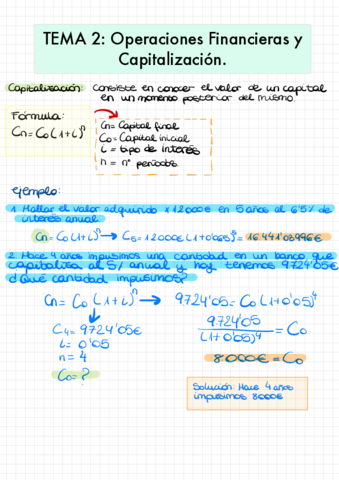 TEMA 2: Operaciones Financieras y
Capitalización.
Capitalización: Consiste en conocer el valor de un capital
en un momento posterior del mismo.
Fórmula:
Cn = Co (1+i)ⁿ
Cn = Capital final
Co = Capital inicial
i = tipo de interés
n = nº períodos.
ejemplo:
1. Hallar el valor adquirido x 12000€ en 5 años al 6'5% de
interés anual
Cn = Co (1+i)ⁿ → C5 = 12000€ (1+0'065)⁵ = 16.441'03996€
2. Hace 4 años impusimos una cantidad en un banco que
capitaliza al 5% anual y hoy tenemos 9724'05€
¿Qué cantidad impusimos?
Cn = Co (1+i)ⁿ → 9724'05 = Co (1+0'05)⁴
C4 = 9724'05€
i = 0'05
n = 4
Co = ?
9724'05
(1+0'05)⁴
= Co
8.000€ = Co
Solución: Hace 4 años
impusimos 8000€